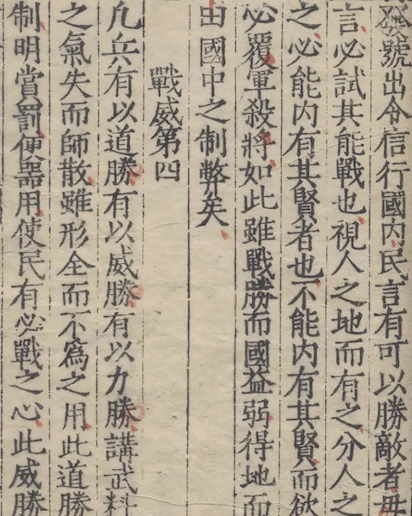 發號出令信行國内民言有可以勝敵者毋
言必試其能戰也視人之地而有之分人之
之必能内有其賢者也不能内有其賢而欲
必覆軍殺將如此雖戰勝而國益弱得地而
由國中之制弊矣
戰威第四
凡兵有以道勝有以威勝有以力勝講武料
之氣失而師散雖形全而不爲之用此道勝
制明賞罰便器用使民有必戰之心此威勝